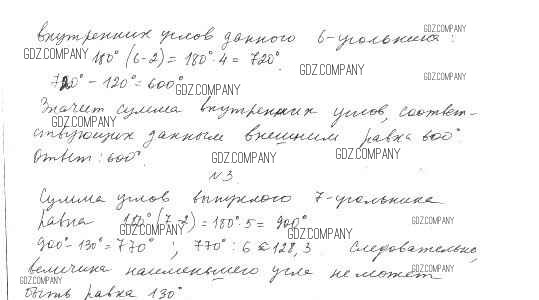 внутренних углов данного 6-угольника :
180° (6-2) = 180° · 4 = 720°.
720° - 120° = 600°
Значит сумма внутренних углов, соответ-
ствующих данным внешним равна 600°.
Ответ: 600°.
N3
Сумма углов выпуклого 7-угольника
равна 180° (7-2) = 180° · 5 = 900°
900° - 130° = 770° ; 770° : 6 ≈ 128,3 Следовательно,
величина наименьшего угла не может
быть равна 130°.
GDZ.COMPANY
GDZ.COMPANY
GDZ.COMPANY
GDZ.COMPANY
GDZ.COMPANY
GDZ.COMPANY
GDZ.COMPANY
GDZ.COMPANY
GDZ.COMPANY
GDZ.COMPANY
GDZ.COMPANY
GDZ.COMPANY
GDZ.COMPANY